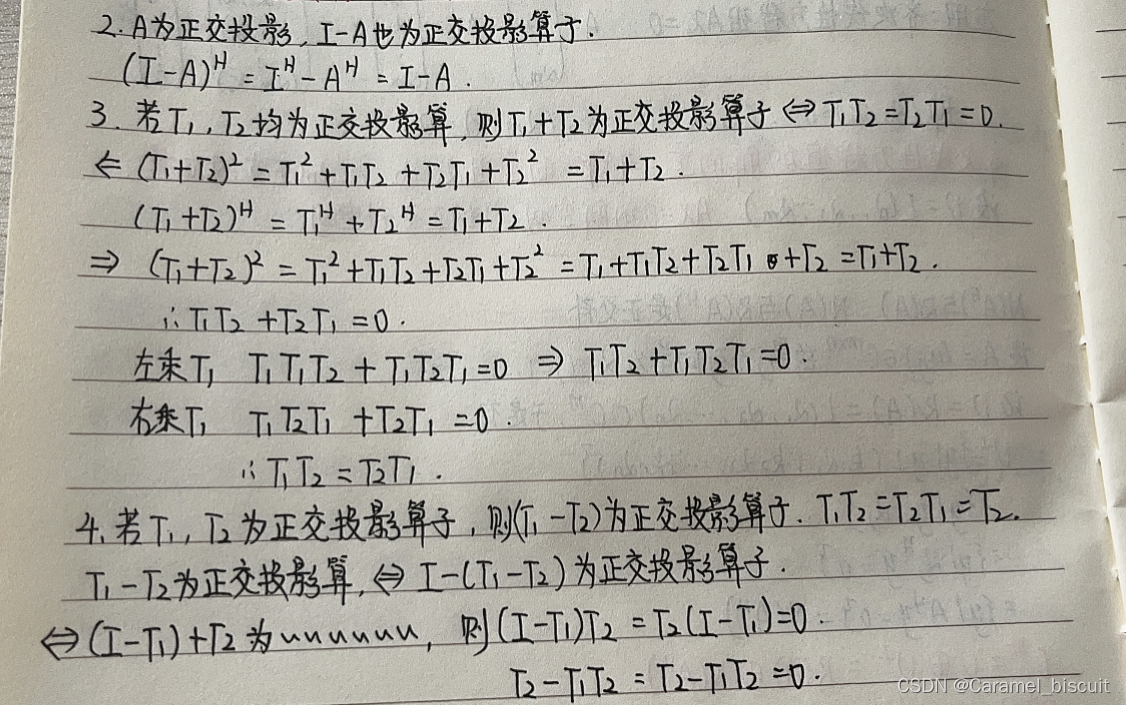 2. A为正交投影, I-A也为正交投影算子.
(I-A)ᴴ = Iᴴ - Aᴴ = I-A.
3. 若T₁, T₂均为正交投影算, 则T₁+T₂为正交投影算子 ⇔ T₁T₂=T₂T₁=0.
⇐ (T₁+T₂)² = T₁²+T₁T₂+T₂T₁+T₂² = T₁+T₂.
(T₁+T₂)ᴴ = T₁ᴴ+T₂ᴴ = T₁+T₂.
⇒ (T₁+T₂)² = T₁²+T₁T₂+T₂T₁+T₂² = T₁+T₁T₂+T₂T₁+T₂ = T₁+T₂.
∴ T₁T₂+T₂T₁=0.
左乘T₁ T₁T₁T₂+T₁T₂T₁=0 ⇒ T₁T₂+T₁T₂T₁=0.
右乘T₁ T₁T₂T₁+T₂T₁=0.
∴ T₁T₂=T₂T₁.
4. 若T₁, T₂为正交投影算子, 则(T₁-T₂)为正交投影算子. T₁T₂=T₂T₁=T₂.
T₁-T₂为正交投影算, ⇔ I-(T₁-T₂)为正交投影算子.
⇔ (I-T₁)+T₂为, 则(I-T₁)T₂ = T₂(I-T₁)=0.
T₂-T₁T₂ = T₂-T₁T₂ =0.
CSDN @Caramel_biscuit